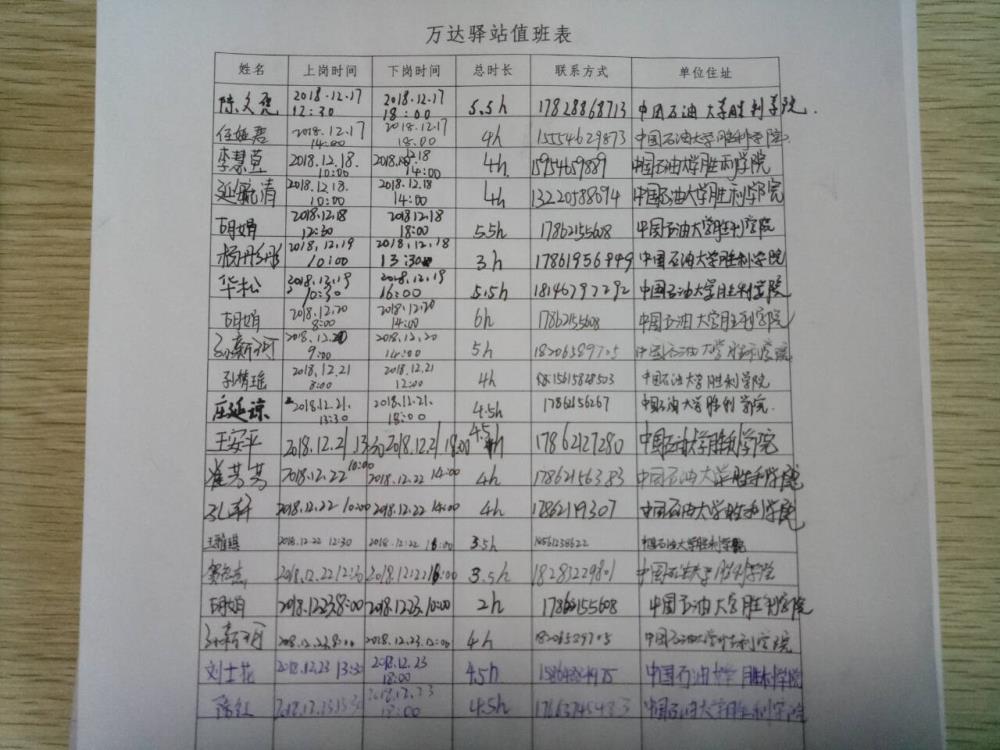 万达驿站值班表
姓名 上岗时间 下岗时间 总时长 联系方式 单位住址
2018.12.17 12:30 2018.12.17 18:00 5.5h 17828868713 中国石油大学胜利学院.
2018.12.17 14:00 2018.12.17 18:00 4h 15554629873 中国石油大学胜利学院
李慧 2018.12.18. 10:00 14:00 4h 15954659889 中国石油大学胜利学院
延毓清 2018.12.18. 10:00 2018.12.18 14:00 4h 13220588694 中国石油大学胜利学院
胡娟 2018.12.18 12:30 2018.12.18 18:00 5.5h 17862155608 中国石油大学胜利学院
杨彤彤 2018.12.19 10:00 2018.12.18 13:30 3h 17861956949 中国石油大学胜利学院
华松 2018.12.19 10:30 2018.12.19 16:00 5.5h 18146797292 中国石油大学胜利学院
胡娟 2018.12.20 8:00 2018.12.20 14:00 6h 17862155608 中国石油大学胜利学院
孙新河 2018.12.20 9:00 2018.12.20 14:00 5h 18206589705 中国石油大学胜利学院
孔倩瑶 2018.12.21 8:00 2018.12.21 12:00 4h 中国石油大学胜利学院
庄延谅 2018.12.21. 13:30 2018.12.21. 18:00 4.5h 1786156267 中国石油大学胜利学院.
王安平 2018.12.21 13:30 2018.12.21 18:00 4.5h 17862127280 中国石油大学胜利学院
崔芳芳 2018.12.22 10:00 2018.12.22 14:00 4h 17862156383 中国石油大学胜利学院
孔轩 2018.12.22 10:00 2018.12.22 14:00 4h 1786219307 中国石油大学胜利学院
王雅琪 2018.12.22 12:30 2018.12.22 16:00 3.5h 中国石油大学胜利学院
2018.12.22 12:30 2018.12.22 16:00 3.5h 18283229801 中国石油大学胜利学院
胡娟 2018.12.23. 8:00 2018.12.23. 10:00 2h 17862155608 中国石油大学胜利学院
2018.12.23. 12:00 4h 中国石油大学胜利学院
刘士花 2018.12.23 13:30 2018.12.23 18:00 4.5h 中国石油大学胜利学院
2018.12.23 18:00 4.5h 中国石油大学胜利学院